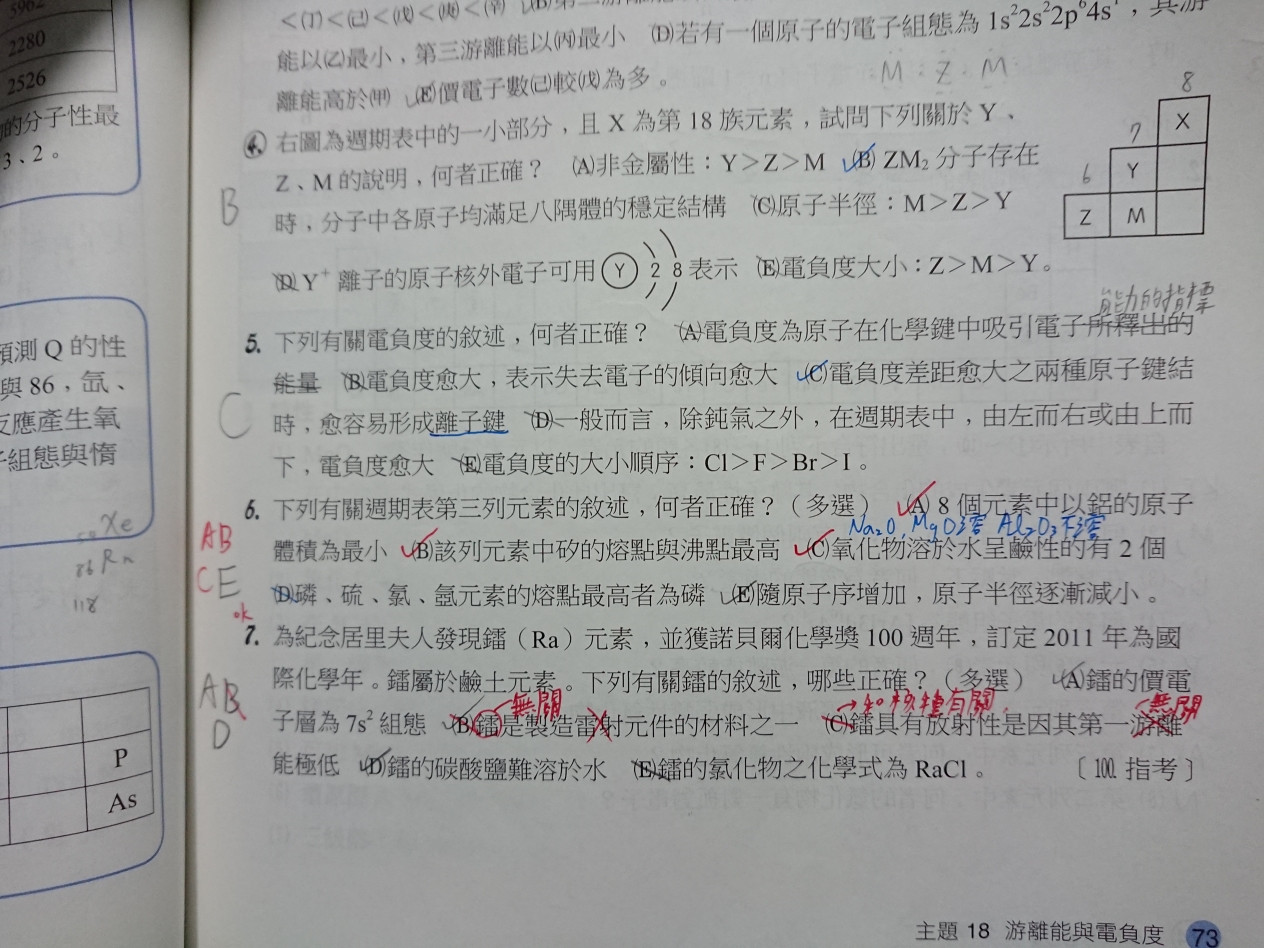 5962
2280
2526
的分子性最
3、2。
預測 Q 的性
與86,氙、
反應產生氧
子組態與惰
Xe
86 Rn
118
P
As
<(丁)<(己)<(戊)<(庚)<(辛)
能以(乙)最小,第三游離能以(丙)最小 (D)若有一個原子的電子組態為 1s²2s²2p⁶4s¹,其游
離能高於(甲) (E)價電子數(己)較(戊)為多。
M Z M
4. 右圖為週期表中的一小部分,且 X 為第 18 族元素,試問下列關於 Y、
Z、M 的說明,何者正確? (A)非金屬性:Y>Z>M (B) ZM₂ 分子存在
時,分子中各原子均滿足八隅體的穩定結構 (C)原子半徑:M>Z>Y
(D) Y⁺ 離子的原子核外電子可用 Y 2 8 表示 (E)電負度大小:Z>M>Y。
B
8
7 X
6 Y
Z M
能力的指標
5. 下列有關電負度的敘述,何者正確? (A)電負度為原子在化學鍵中吸引電子所釋出的
能量 (B)電負度愈大,表示失去電子的傾向愈大 (C)電負度差距愈大之兩種原子鍵結
時,愈容易形成離子鍵 (D)一般而言,除鈍氣之外,在週期表中,由左而右或由上而
下,電負度愈大 (E)電負度的大小順序:Cl>F>Br>I。
C
6. 下列有關週期表第三列元素的敘述,何者正確?(多選) (A) 8 個元素中以鋁的原子
Na₂O, MgO溶 Al₂O₃不溶
體積為最小 (B)該列元素中矽的熔點與沸點最高 (C)氧化物溶於水呈鹼性的有 2 個
(D)磷、硫、氯、氬元素的熔點最高者為磷 (E)隨原子序增加,原子半徑逐漸減小。
AB
CE
ok
7. 為紀念居里夫人發現鐳(Ra)元素,並獲諾貝爾化學獎 100 週年,訂定 2011 年為國
際化學年。鐳屬於鹼土元素。下列有關鐳的敘述,哪些正確?(多選) (A)鐳的價電
無關 →和核種有關, 無關
子層為 7s² 組態 (B)鐳是製造雷射元件的材料之一 (C)鐳具有放射性是因其第一游離
能極低 (D)鐳的碳酸鹽難溶於水 (E)鐳的氯化物之化學式為 RaCl。 〔100. 指考〕
AB
D
主題 18 游離能與電負度 73